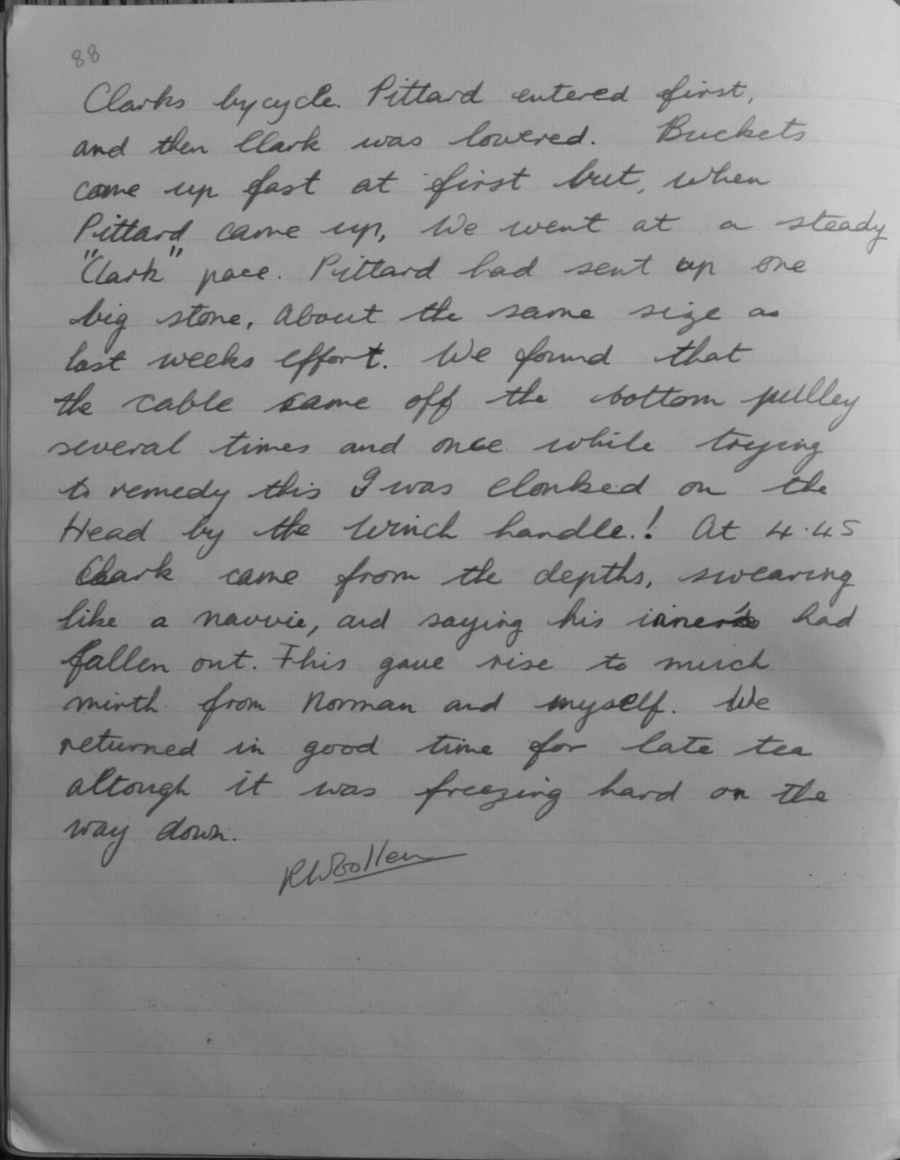 88
Clarks bycycle. Pittard entered first,
and then Clark was lowered. Buckets
came up fast at first but, when
Pittard came up, We went at a steady
"Clark" pace. Pittard had sent up one
big stone, About the same size as
last weeks effort. We found that
the cable came off the bottom pulley
several times and once while trying
to remedy this I was clonked on the
Head by the winch handle.! At 4.45
Clark came from the depths, swearing
like a navvie, and saying his had
fallen out. This gave rise to much
mirth from Norman and myself. We
returned in good time for late tea
altough it was freezing hard on the
way down.
R Woollen